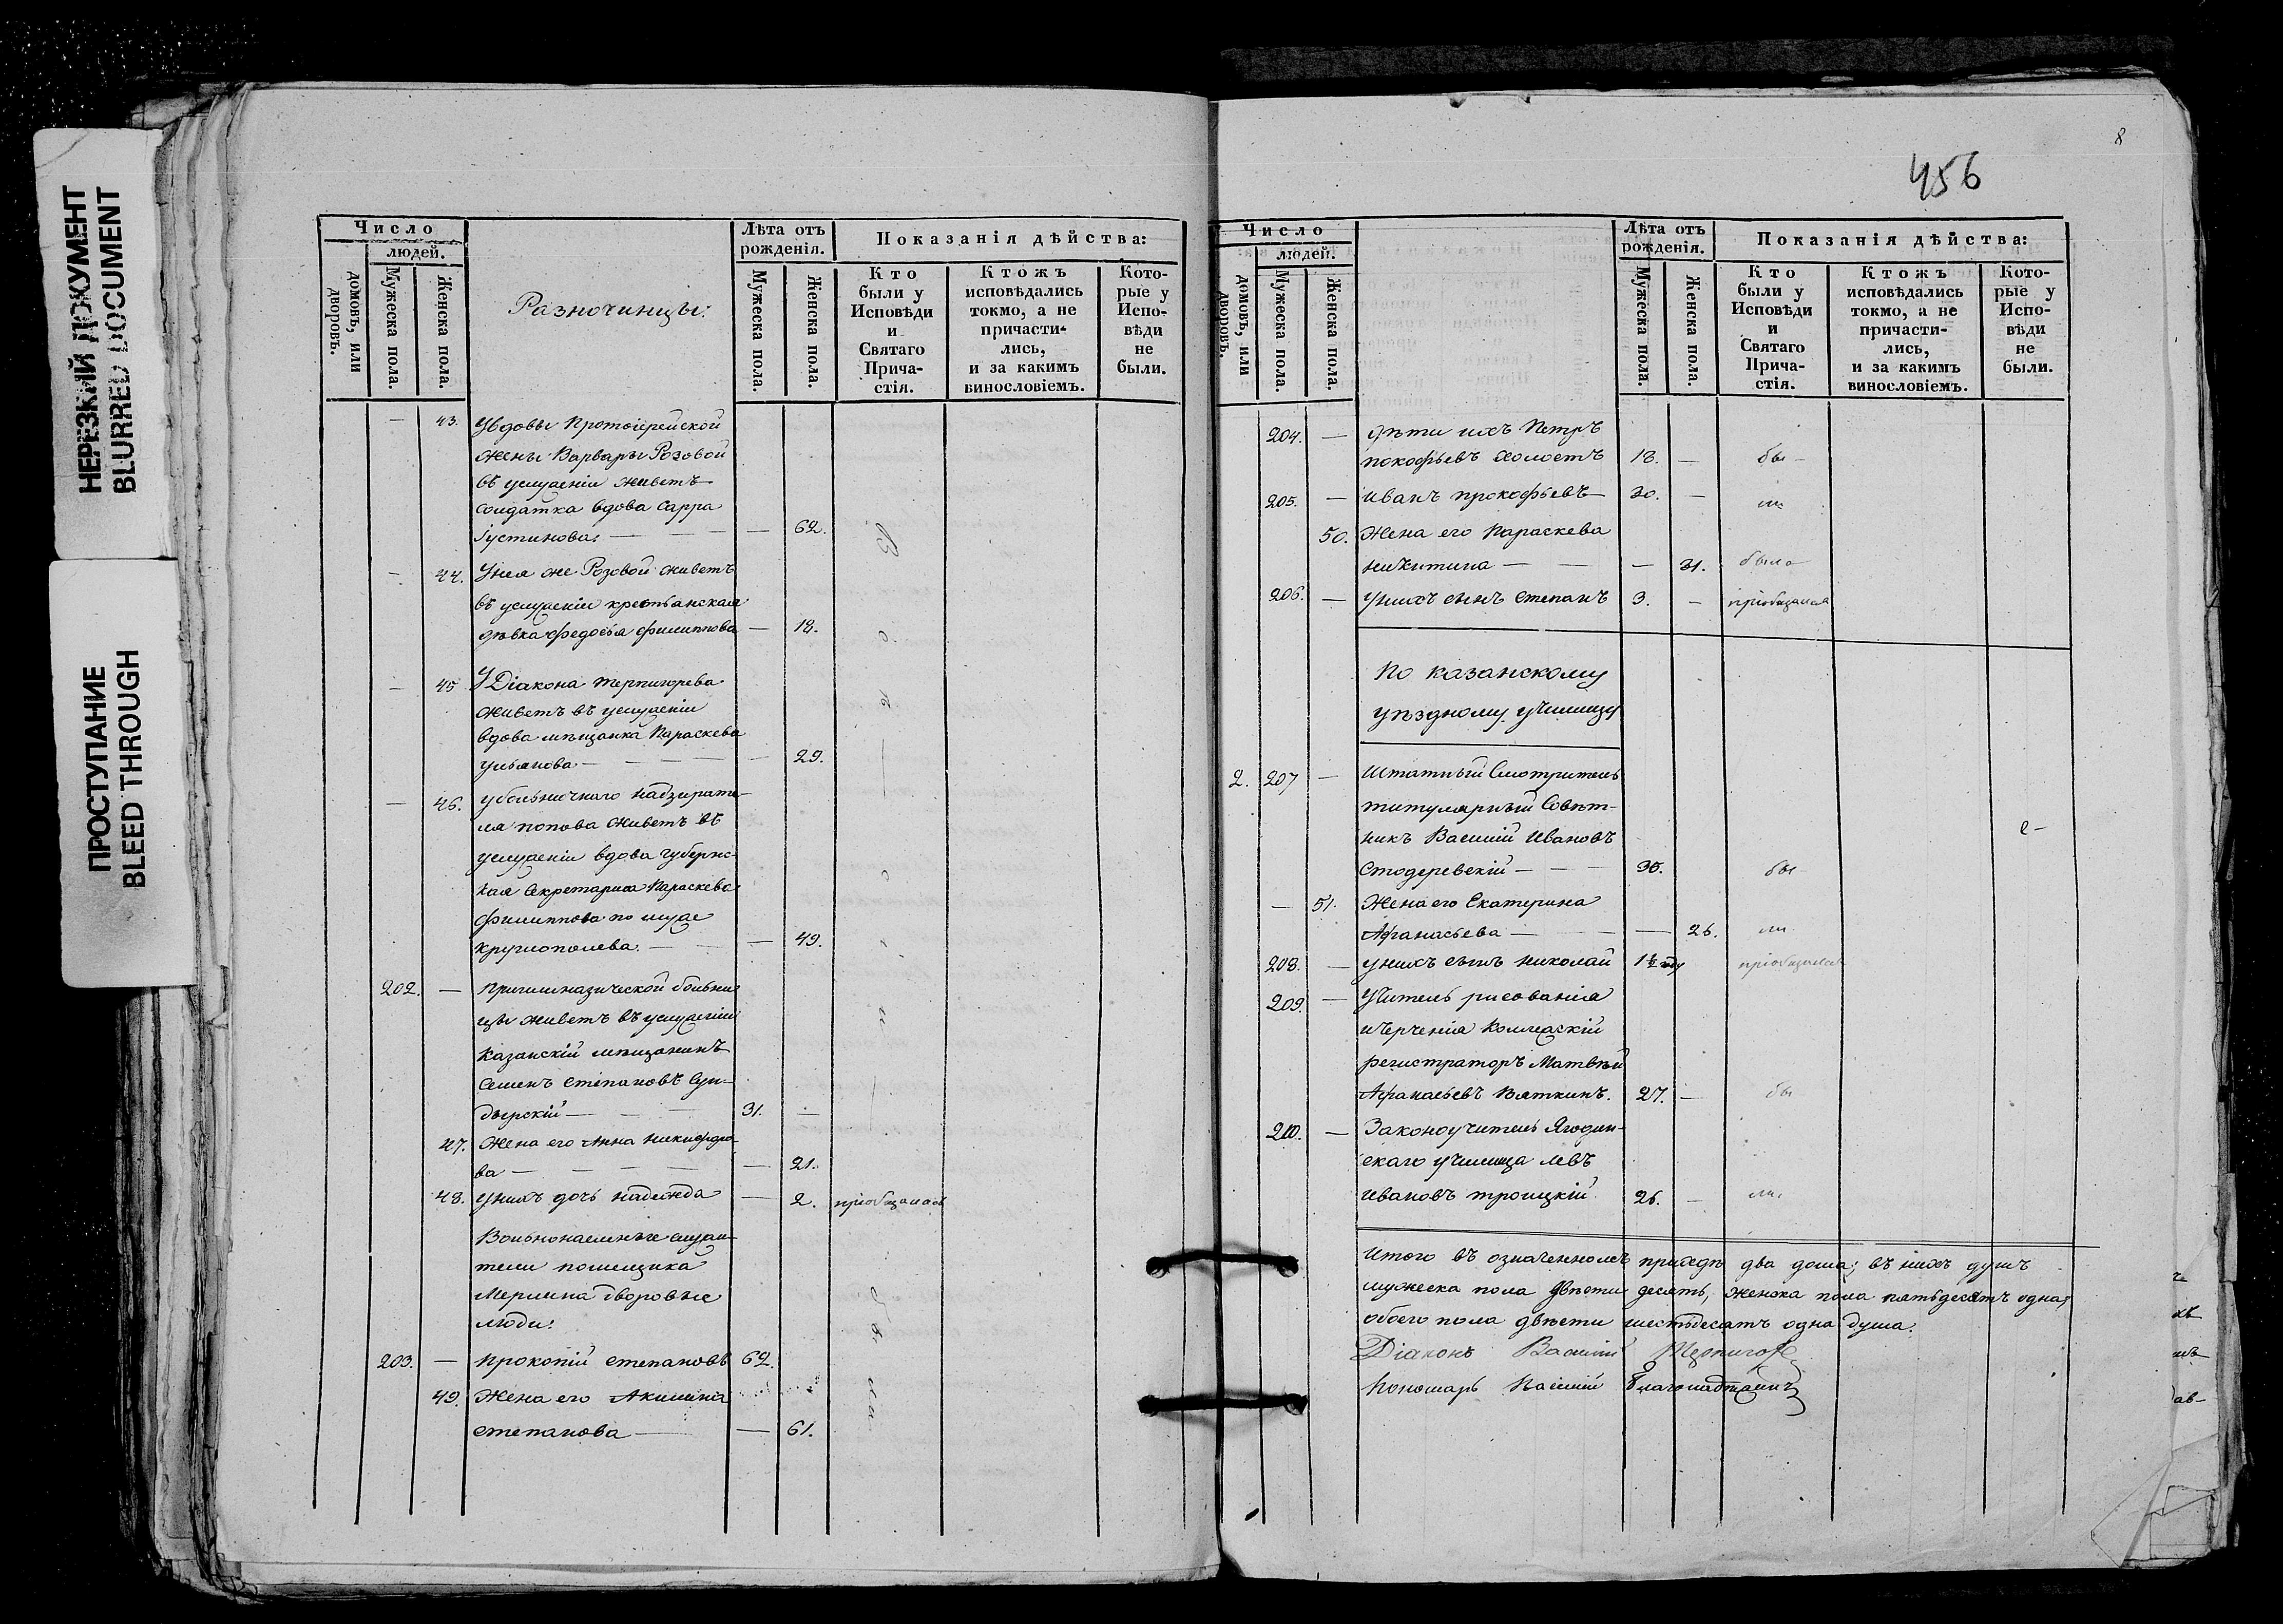 НЕРЕЗКИЙ ДОКУМЕНТ
BLURRED DOCUMENT
ПРОСТУПАНИЕ
BLEED THROUGH
Число
людей.
домовъ, или дворовъ.
Мужеска пола.
Женска пола.
Разночинцы:
Лѣта отъ рожденія.
Мужеска пола.
Женска пола.
Показанія дѣйства:
Кто были у Исповѣди и Святаго Прича-стія.
Ктожъ исповѣдались токмо, а не причасти-лись, и за какимъ винословіемъ.
Кото-рые у Испо-вѣди не были.
— 43. У вдовы Протоіерейской
жены Варвары Розовой
въ услуженіи живетъ
солдатка вдова Сарра
Іустинова — — — 62.
— 44. У нея же Розовой живетъ
въ услуженіи крестьянская
дѣвка Федосья Филиппова — 18.
— 45 У Діакона Терпигорева
живетъ въ услуженіи
вдова мѣщанка Параскева
Ульянова — — — 29.
— 46. У больничнаго надзирате-
ля Попова живетъ въ
услуженіи вдова губернс-
кая Секретарша Параскева
Филиппова по мужѣ
Круглополева — — 49.
202. — При гимназической больни
цѣ живетъ въ услуженіи
Казанскій мѣщанинъ
Семенъ Степановъ Сун-
дырскій — — 31. —
47. Жена его Анна Никифоро-
ва — — — — 21.
48. У нихъ дочь Надежда — 2. пріобщалась
Вольнонаемные служи-
тели помещика
Мерлина дворовые
люди:
203. — Прокопій Степановъ 62.
49. Жена его Акилина
Степанова — — 61.
8
456
Число
людей.
домовъ, или дворовъ.
Мужеска пола.
Женска пола.
Лѣта отъ рожденія.
Мужеска пола.
Женска пола.
Показанія дѣйства:
Кто были у Исповѣди и Святаго Прича-стія.
Ктожъ исповѣдались токмо, а не причасти-лись, и за какимъ винословіемъ.
Кото-рые у Испо-вѣди не были.
204. — Дѣти ихъ Петръ
Прокофьевъ холостъ 18. — бы-
205. — Иванъ Прокофьевъ — 30. — ли
50. Жена его Параскева
Никитина — — — 31. была
206. — У нихъ сынъ Степанъ 3. — пріобщался
По казанскому
уѣздному училищу
2. 207 — Штатный Смотритель
титулярный Совѣт-
никъ Василій Ивановъ
Стодеревскій — — 30. бы-
— 51. Жена его Екатерина
Афанасьева — — — 26. ли.
208. — У нихъ сынъ Николай 1½ году пріобщался
209. — Учитель рисованія
и черченія Коллежскій
регистраторъ Матвѣй
Афанасьевъ Вяткинъ. 27. — бы
210. — Законоучитель Ягодин-
скаго училища Левъ
Ивановъ Троицкій 26. — ли.
Итого въ означенномъ приходѣ два дома; въ нихъ душъ
мужеска пола двѣсти десять, женска пола пятьдесятъ одна,
обоего пола двѣсти шестьдесятъ одна душа.
Діаконъ Василій Терпигор
Пономарь